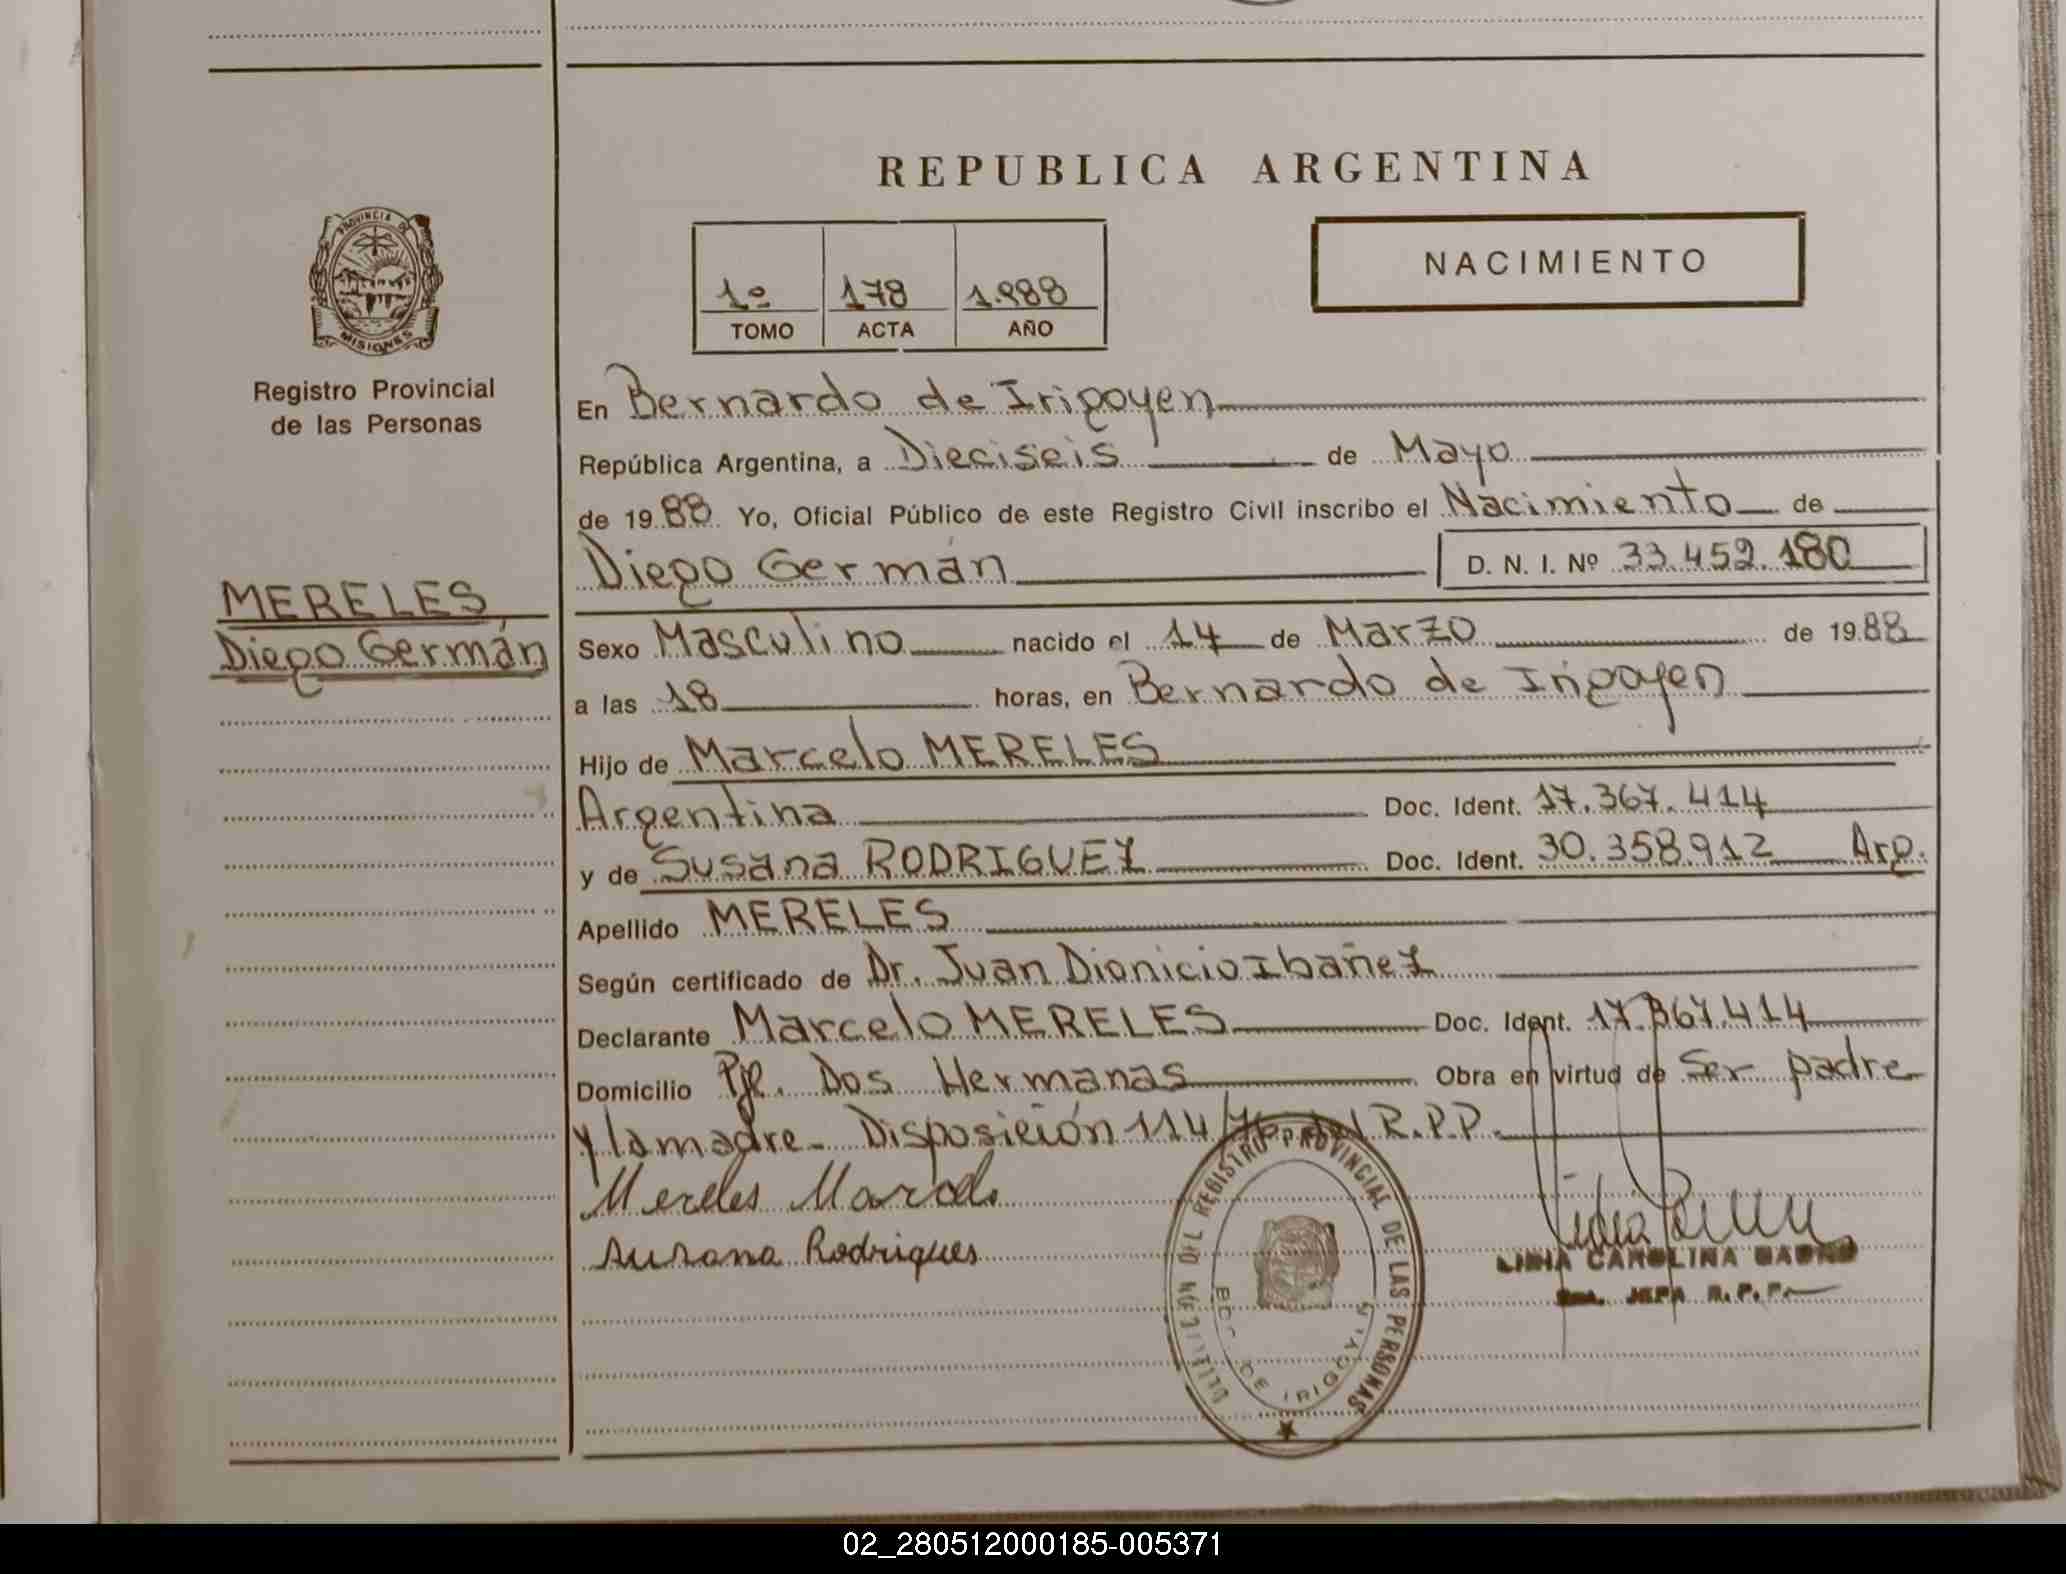 REPUBLICA ARGENTINA
PROVINCIA DE
MISIONES
Registro Provincial
de las Personas
MERELES
Diego Germán
1º 178 1.988
TOMO ACTA AÑO
NACIMIENTO
En Bernardo de Irigoyen
República Argentina, a Dieciseis de Mayo
de 1988 Yo, Oficial Público de este Registro Civil inscribo el Nacimiento de
Diego Germán D. N. I. Nº 33.452.180
Sexo Masculino nacido el 14 de Marzo de 1988
a las 18 horas, en Bernardo de Irigoyen
Hijo de Marcelo MERELES
Argentina Doc. Ident. 17.367.414
y de Susana RODRIGUEZ Doc. Ident. 30.358.912 Arg.
Apellido MERELES
Según certificado de Dr. Juan Dionicio Ibañez
Declarante Marcelo MERELES Doc. Ident. 17.367.414
Domicilio Pje. Dos Hermanas Obra en virtud de Ser padre
y la madre - Disposición 114/76 del R.P.P.
Mereles Marcelo
Susana Rodrigues
DEL REGISTRO PROVINCIAL DE LAS PERSONAS
BDO. DE IRIGOYEN
CAROLINA
JEFA R.P.P.
02_280512000185-005371